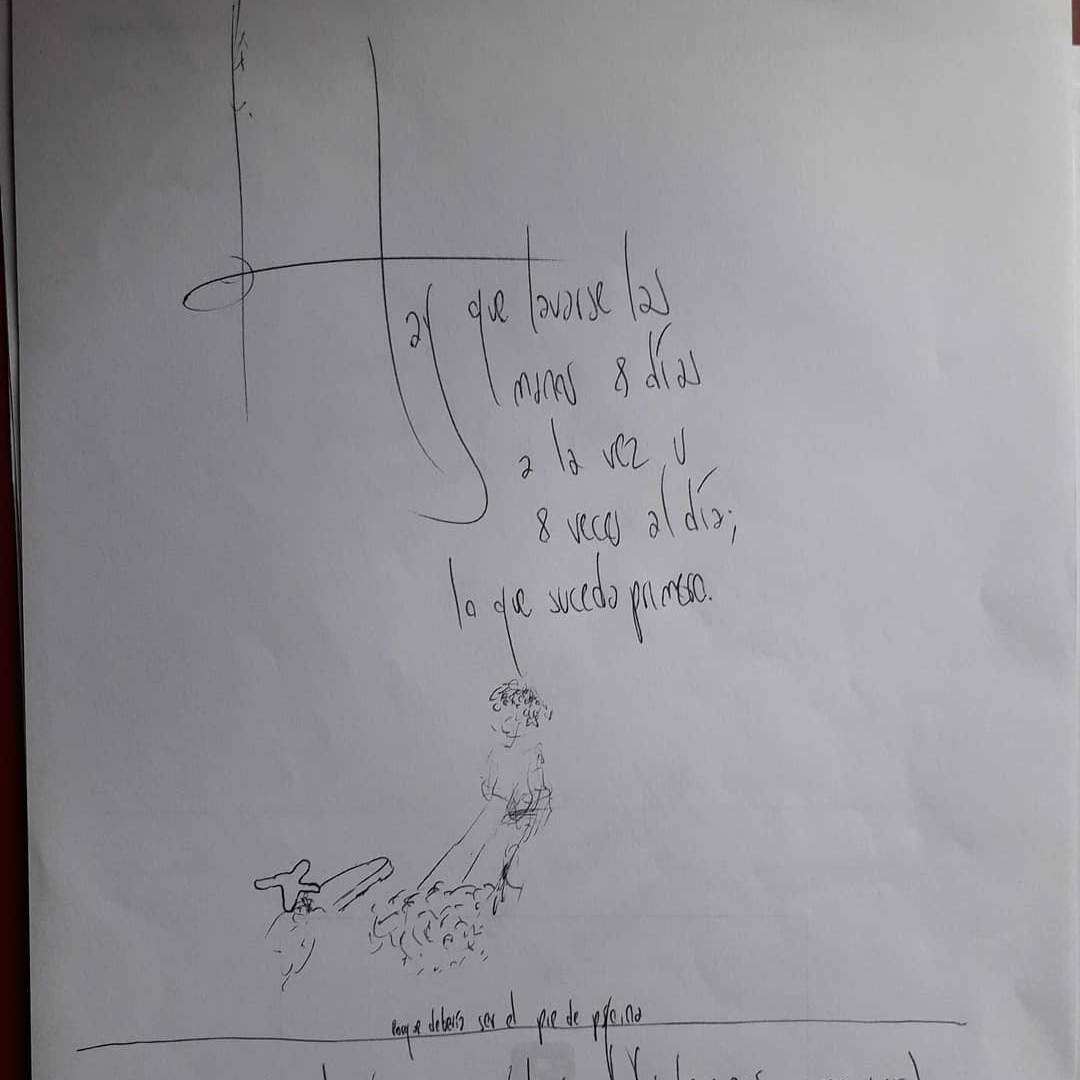 Hay que lavarse las
manos 8 días
a la vez u
8 veces al día;
lo que suceda primero.
debería ser el pie de página